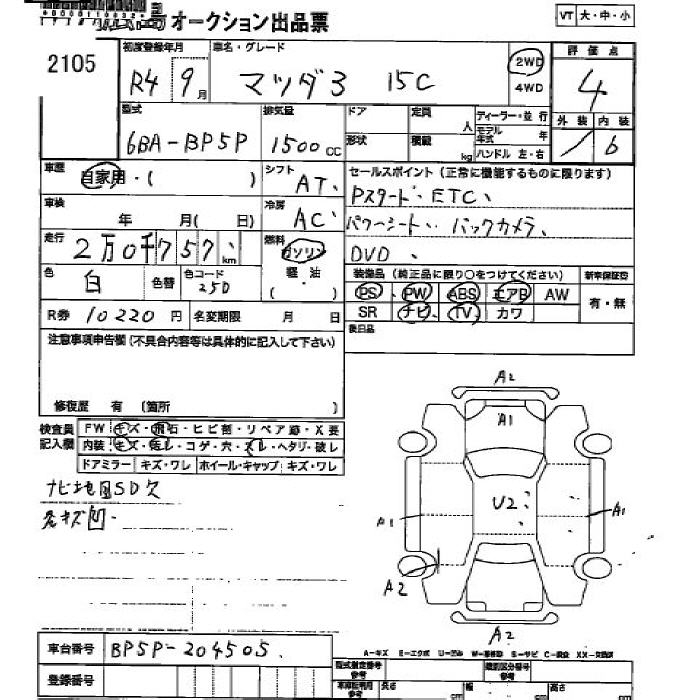 オークション出品票
VT 大・中・小
2105
初度登録年月 車名・グレード 評価点
R4 9月 マツダ3 15C 2WD 4WD 4
型式 排気量 ドア 定員 人 ディーラー・並行 外装 内装
6BA-BP5P 1500cc 形状 積載 kg モデル年式 年 ハンドル 左・右 6
車歴 自家用・( ) シフト AT、 セールスポイント (正常に機能するものに限ります)
Pスタード、ETC、
車検 年 月( 日) 冷房 AC、 パワーシート、バックカメラ、
走行 2万0千757、km 燃料 ガソリン 軽・油・( ) DVD、
装備品 (純正品に限り○をつけてください) 新車保証書
色 白 色替 色コード 25D PS PW ABS エアB AW 有・無
R券 10220円 名変期限 月 日 SR ナビ TV カワ
後日品
注意事項申告欄(不具合内容等は具体的に記入して下さい)
修復歴 有 (箇所 )
検査員記入欄 FW キズ・飛石・ヒビ割・リペア跡・X要
内装 キズ・汚レ・コゲ・穴・スレ・ヘタリ・破レ
ドアミラー キズ・ワレ ホイール・キャップ キズ・ワレ
ナビ地図SD欠
A2
A1
U2
A1
A1
A2
A2
A-キズ E-エクボ U-凹ミ W-補修跡 S-サビ C-腐食 XX-交換済
車台番号 BP5P-204505.
登録番号
型式指定番号 参考 類別区分番号 参考
車庫証明用 参考 長さ cm 幅 cm 高さ cm